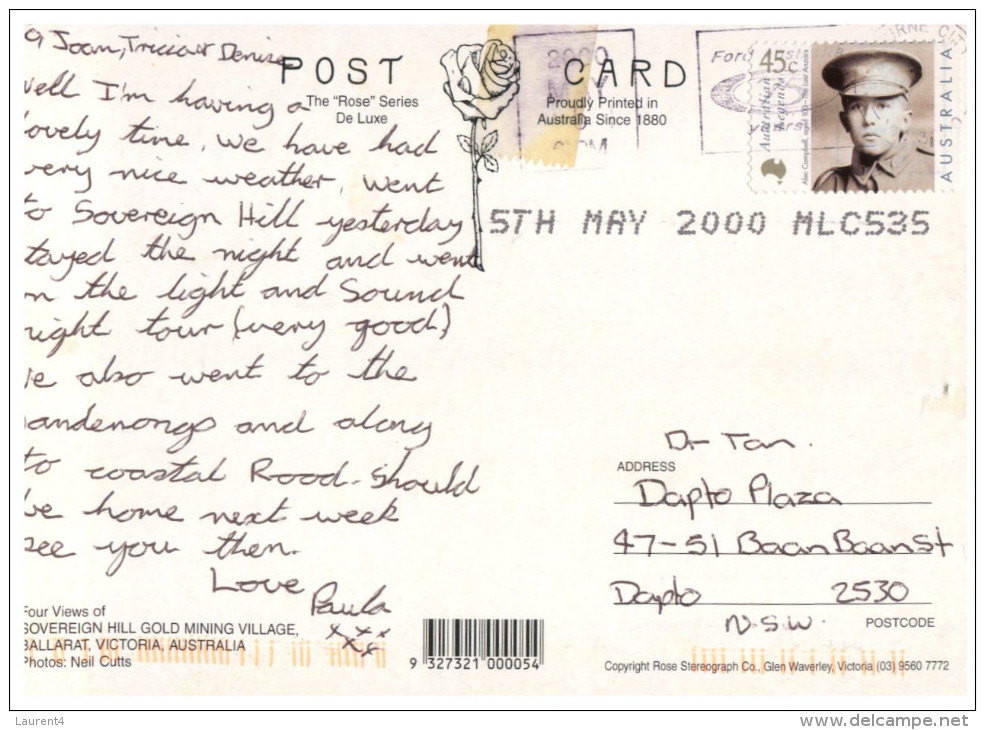 Joan, Tricia & Denise
well I'm having a
lovely time, we have had
very nice weather, went
to Sovereign Hill yesterday
stayed the night and went
on the light and Sound
night tour (very good)
We also went to the
andenongs and along
to coastal Road. Should
be home next week
see you then.
Love Paula
xxx
xx
POST CARD
The "Rose" Series
De Luxe
Proudly Printed in
Australia Since 1880
2000
PM
Ford
45c
Australian Legends
Alec Campbell, aged 100 - The Last Anzacs
AUSTRALIA
5TH MAY 2000 MLC535
Dr Tan.
ADDRESS
Dapto Plaza
47-51 Baan Baan St
Dapto 2530
N.S.W.
POSTCODE
Four Views of
SOVEREIGN HILL GOLD MINING VILLAGE,
BALLARAT, VICTORIA, AUSTRALIA
Photos: Neil Cutts
9 327321 000054
Copyright Rose Stereograph Co., Glen Waverley, Victoria (03) 9560 7772
Laurent4
www.delcampe.net